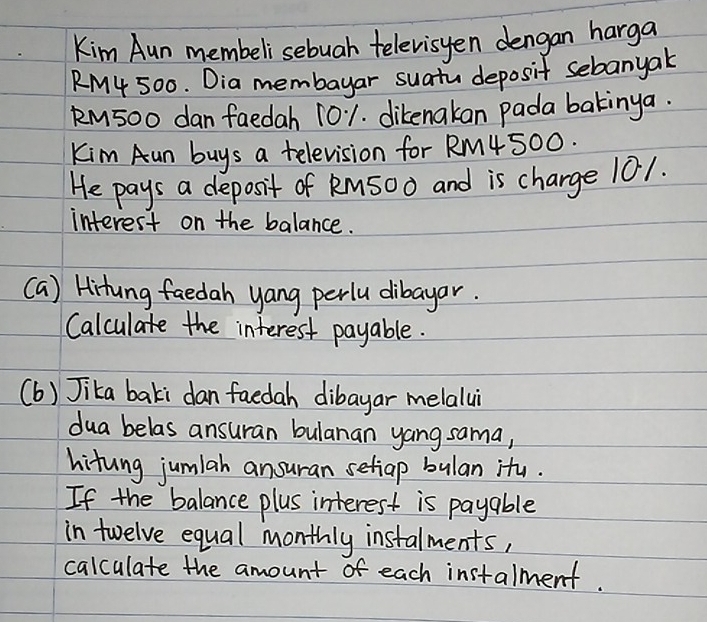 Kim Aun membeli sebuah televisyen dengan harga
RM4 500. Dia membayar suatu deposit sebanyak
RM500 dan faedah 10%. dikenakan pada bakinya.
Kim Aun buys a television for RM4500.
He pays a deposit of RM500 and is charge 10%.
interest on the balance.
(a) Hitung faedah yang perlu dibayar.
Calculate the interest payable.
(b) Jika baki dan faedah dibayar melalui
dua belas ansuran bulanan yang sama,
hitung jumlah ansuran setiap bulan itu.
If the balance plus interest is payable
in twelve equal monthly instalments,
calculate the amount of each instalment.